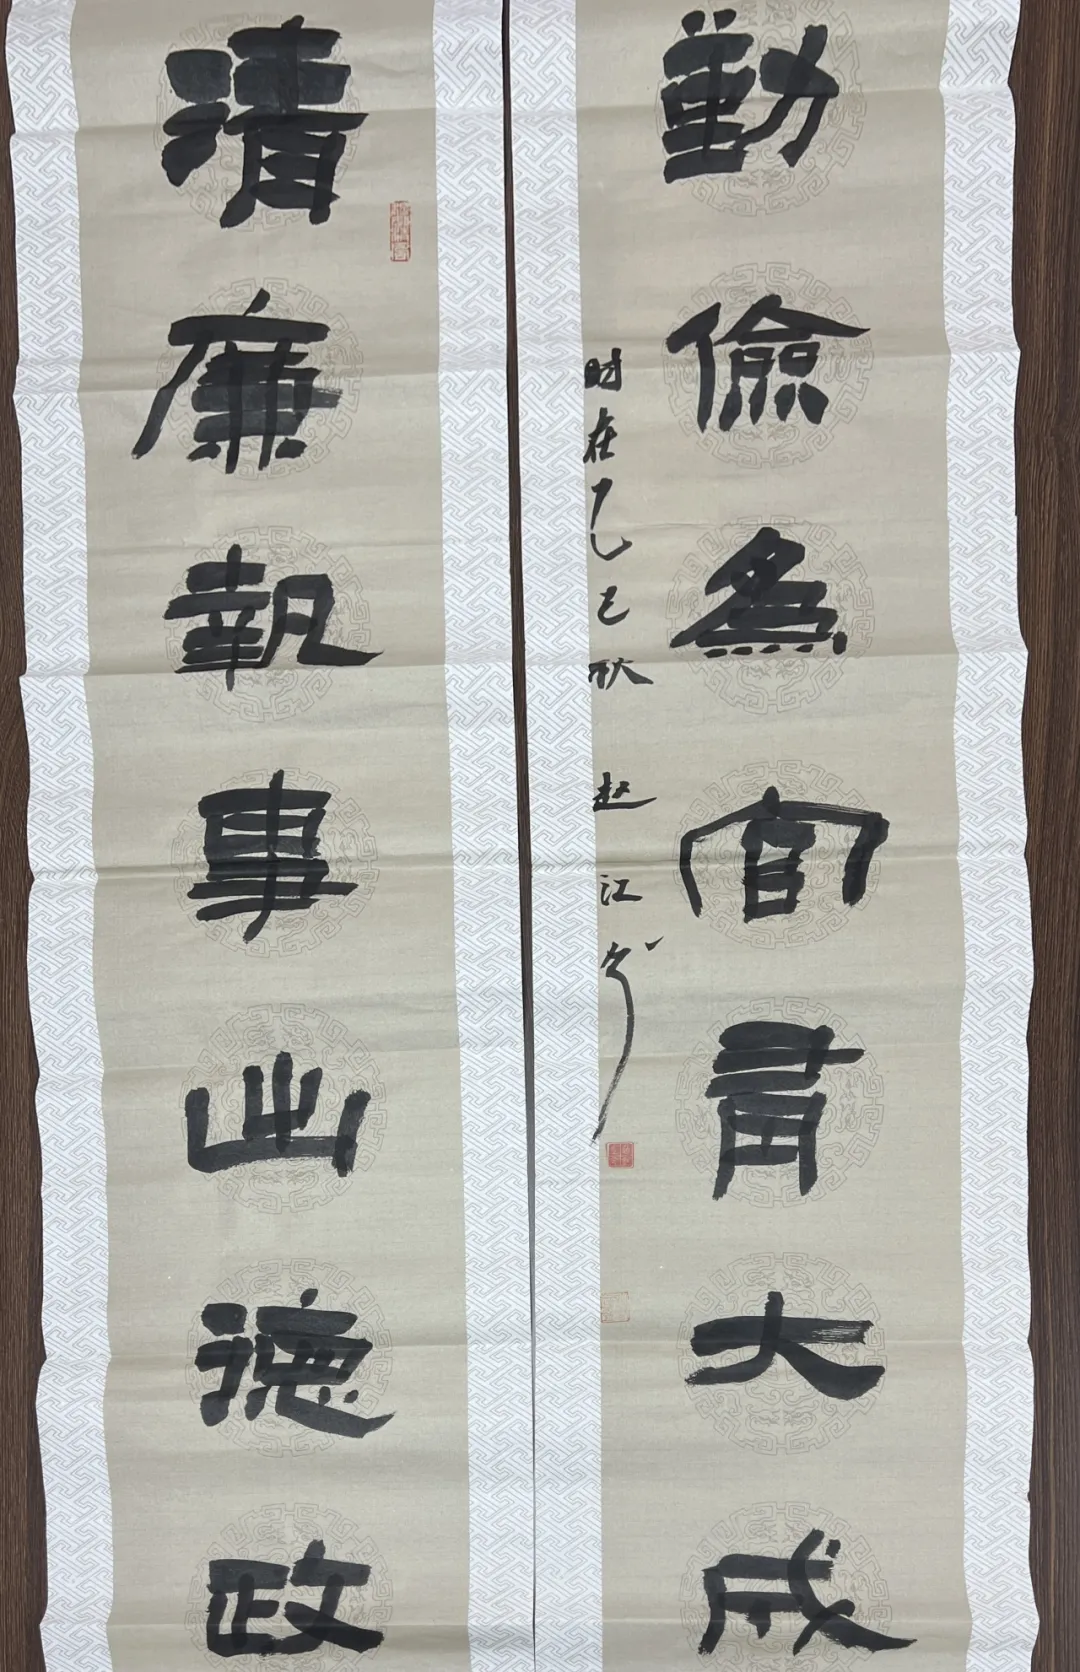 清廉執事出德政
勤儉為官大成
时在乙巳秋 赵江书